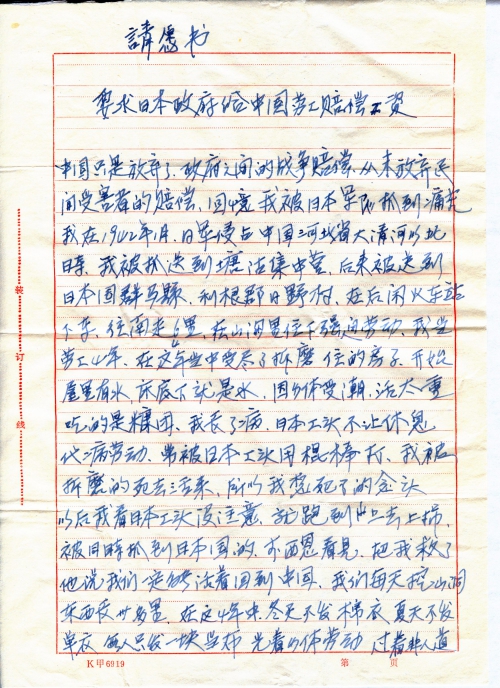 請愿书
要求日本政府给中国劳工赔偿工资
中国只是放弃了政府之间的战争赔偿,从未放弃民
间受害者的赔偿,回忆我被日本军队抓到痛苦
我在1942年 日军侵占中国河北省大清河以北
我被抓送到塘沽集中营,后来被送到
日本国群马县,利根郡 野村,在后闲火车站
下车,往南走6里,在山沟里住下强迫劳动,我当
劳工4年,在这4年当中受尽了折磨 住的房子,开始
屋里有水,床底下就是水,因身体受潮,活太重
吃的是糠团,我长了病,日本工头不让休息
代病劳动,常被日本工头用棍棒打,我被
折磨的死去活来,所以我想死了的念头
以后我看日本工头没注意,就跑到山上去上吊,
被同时抓到日本国的, 西恩看见,把我救了
他说我们一定能活着回到中国,我们每天挖山洞
东西长廿多里,在这4年中,冬天不发棉衣 夏天不发
单衣 每人只发一块 布 光着身体劳动 过着非人道
装订线
K甲6919
第 页